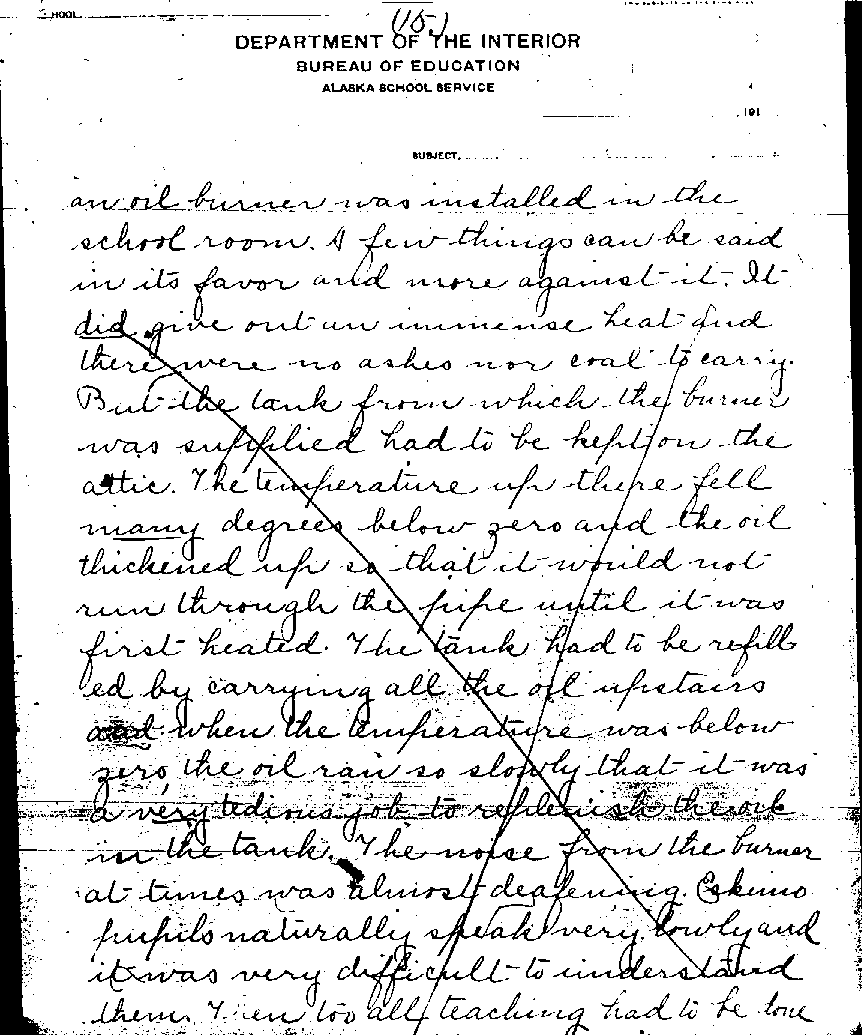 (15.)
DEPARTMENT OF THE INTERIOR
BUREAU OF EDUCATION
ALASKA SCHOOL SERVICE
191
SUBJECT,
an oil burner was installed in the
school room. A few things can be said
in its favor and more against it. It
did give out an immense heat and
there were no ashes nor coal to carry.
But the tank from which the burner
was supplied had to be kept on the
attic. The temperature up there fell
many degrees below zero and the oil
thickened up so that it would not
run through the pipe until it was
first heated. The tank had to be refill
ed by carrying all the oil upstairs
and when the temperature was below
zero, the oil ran so slowly that it was
a very tedious job to replenish the oil
in the tank. The noise from the burner
at times was almost deafening. Eskimo
pupils naturally speak very lowly and
it was very difficult to understand
them. Then too all teaching had to be done